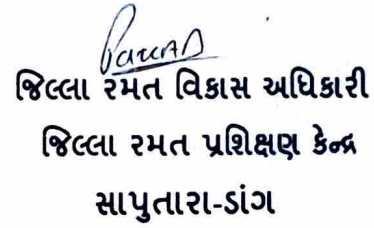 જિલ્લા રમત વિકાસ અધિકારી
જિલ્લા રમત પ્રશિક્ષણ કેન્દ્ર
સાપુતારા-ડાંગ